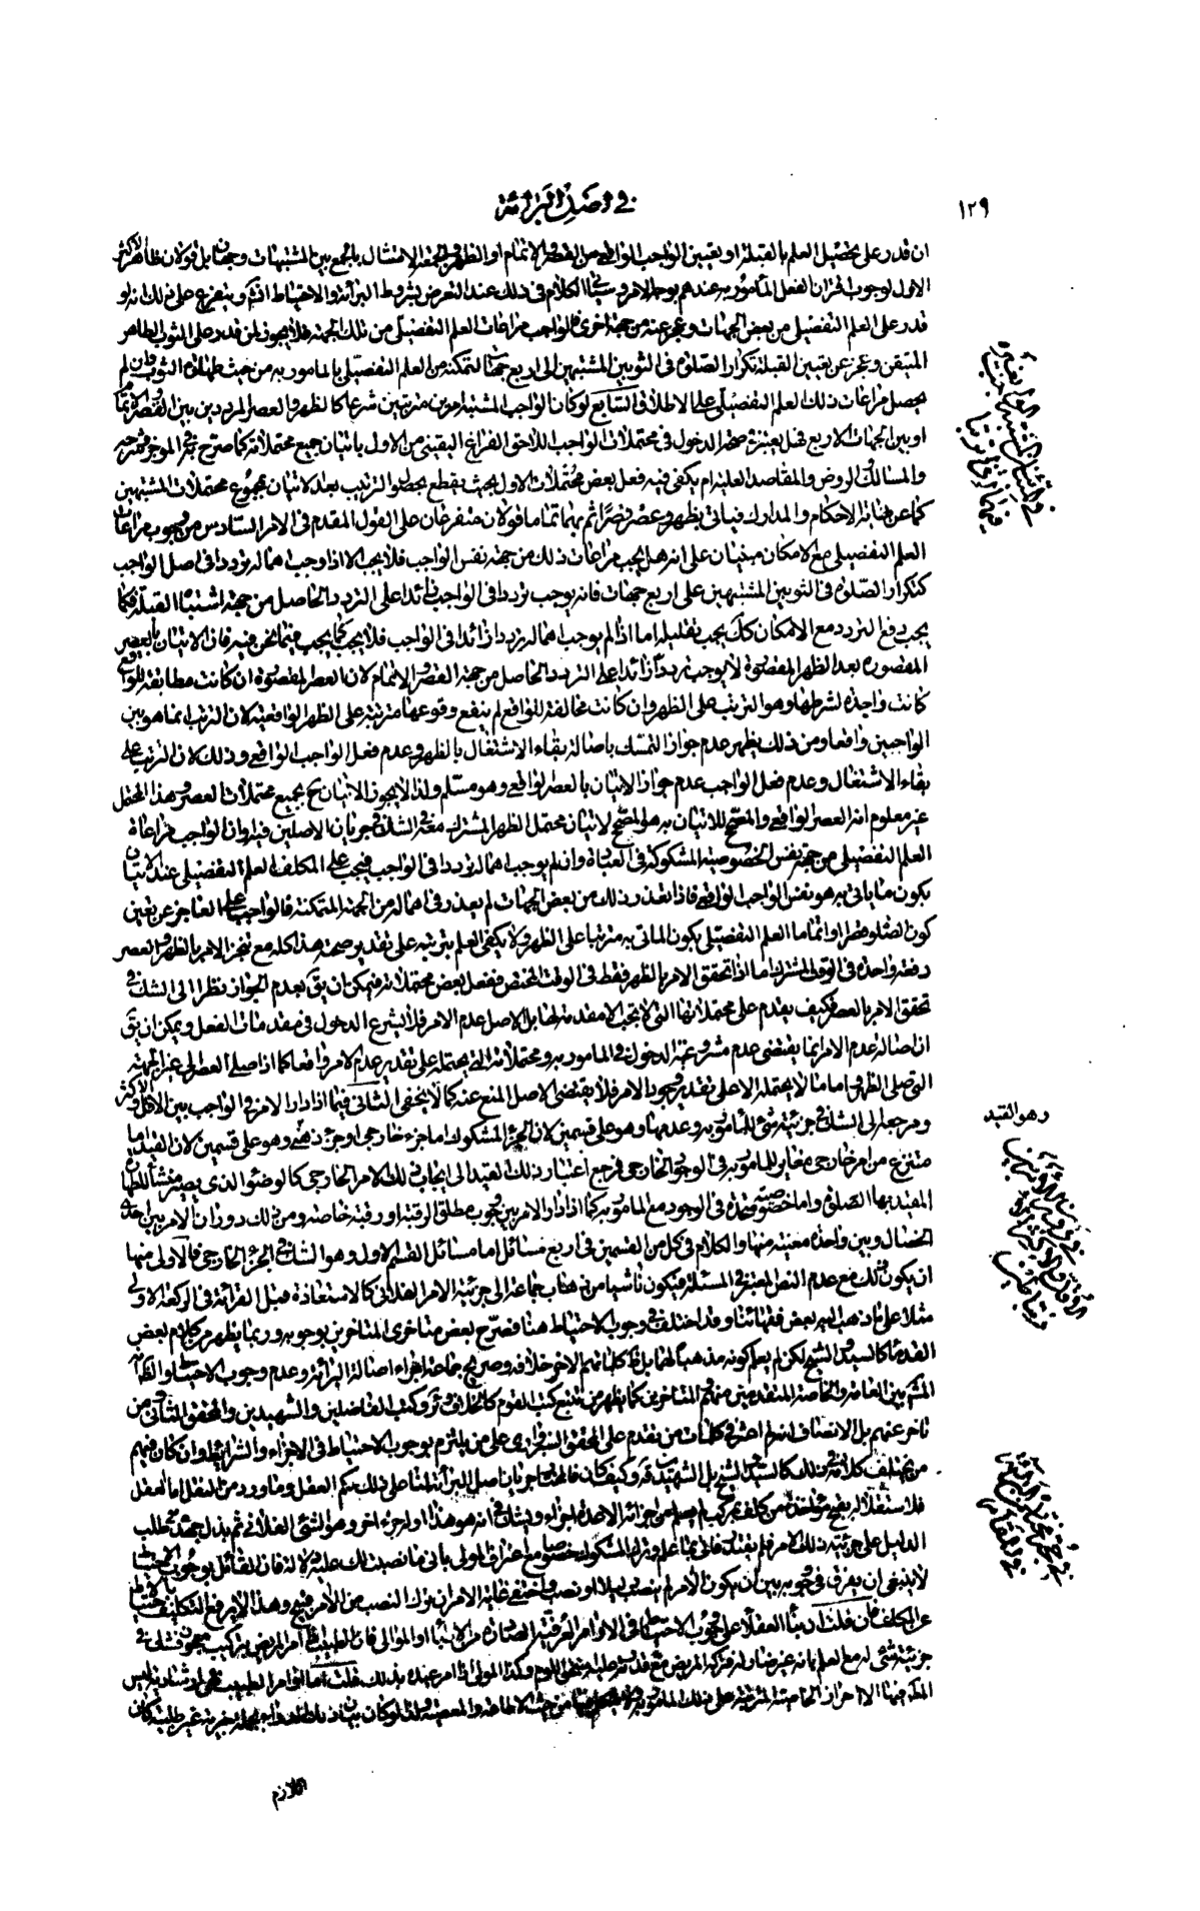 ١٢٩
في اصل البرائة
ان قدر على تحصيل العلم بالقبلة او تعيين الواجب الواقعى من القصر والاتمام او الظهر والجمعة الامتثال بالجمع بين المشتبهات وجهان بل قولان ظاهر الاكثر
الاول لوجوب اقتران الفعل المأمور به عندهم بوجه الامر وسيأتى الكلام فى ذلك عند التعرض لشروط البرائة والاحتياط انشاء ويتفرع على ذلك انه لو
قدر على العلم التفصيلى من بعض الجهات وعجز عنه من جهة اخرى فالواجب مراعات العلم التفصيلى من تلك الجهة فلا يجوز لمن قدر على الثوب الطاهر
المتيقن وعجز عن تعيين القبلة تكرار الصلوة فى الثوبين المشتبهين الى اربع جهات لتمكنه من العلم التفصيلى بالمامور به من حيث طهارة الثوب وان لم
يحصل مراعات ذلك العلم التفصيلى على الاطلاق السابع لو كان الواجب المشتبه امرين مترتبين شرعا كالظهر والعصر المرددين بين القصر والاتمام
او بين الجهات الاربع فهل يعتبر فى صحة الدخول فى محتملات الواجب اللاحق الفراغ اليقينى من الاول باتيان جميع محتملاته كما صرح به فى الموجز وشرحه
والمسالك والروض والمقاصد العلية ام يكفى فيه فعل بعض محتملات الاول بحيث يقطع بحصول الترتيب بعد الاتيان بمجموع محتملات المشتبهين
كما عن نهاية الاحكام والمدارك فياتى بظهر وعصر قصرا ثم بهما تماما قولان متفرعان على القول المقدم فى الامر السادس من وجوب مراعات
العلم التفصيلى مع الامكان مبنيان على انه هل يجب مراعات ذلك من جهة نفس الواجب فلا يجب الا اذا اوجب اهماله ترددا فى اصل الواجب
كتكرار الصلوة فى الثوبين المشتبهين على اربع جهات فانه يوجب ترددا فى الواجب زائدا على التردد الحاصل من جهة اشتباه القبلة فكما
يجب رفع التردد مع الامكان كك يجب تقليله اما اذا لم يوجب اهماله ترددا زائدا فى الواجب فلا يجب كما فيما نحن فيه فان الاتيان بالعصر
المقصورة بعد الظهر المقصورة لا يوجب ترددا زائدا على التردد الحاصل من جهة القصر والاتمام لان العصر المقصورة ان كانت مطابقة للواقع
كانت واجدة لشرطها وهو الترتب على الظهر وان كانت مخالفة للواقع لم ينفع وقوعها مترتبة على الظهر الواقعية لان الترتب انما هو بين
الواجبين واقعا ومن ذلك يظهر عدم جواز التمسك باصالة بقاء الاشتغال بالظهر وعدم فعل الواجب الواقعى وذلك لان الترتب على
بقاء الاشتغال وعدم فعل الواجب عدم جواز الاتيان بالعصر الواقعى وهو مسلم ولذا لا يجوز الاتيان ح بجميع محتملات العصر وهذا المحتمل
غير معلوم انه العصر الواقعى والمصحح للاتيان به هو المصحح لاتيان محتمل الظهر المشترك معه فى الشك وجريان الاصلين فيه او ان الواجب مراعاة
العلم التفصيلى من جهة نفس الخصوصية المشكوكة فى العبادة وان لم يوجب اهماله ترددا فى الواجب فيجب على المكلف العلم التفصيلى عند الاتيان
بكون ما ياتى به هو نفس الواجب الواقعى فاذا تعذر ذلك من بعض الجهات لم يعذر فى اهماله من الجهة المتمكنة فالواجب على العاجز عن تعيين
كون الصلوة قصرا او تماما العلم التفصيلى بكون المأتى به مترتبا على الظهر ولا يكفى العلم بترتبه على تقدير صحته هذا كله مع تنجز الامر بالظهر والعصر
دفعة واحدة فى الوقت المشترك اما اذا تحقق الامر بالظهر فقط فى الوقت المختص ففعل بعض محتملاته فيمكن ان يق بعدم الجواز نظرا الى الشك فى
تحقق الامر بالعصر فكيف يقدم على محتملاتها التى لا تجب الا مقدمة لها بل الاصل عدم الامر فلا يشرع الدخول فى مقدمات الفعل ويمكن ان يق
ان اصالة عدم الامر انما يقتضى عدم مشروعية الدخول فى المامور به ومحتملاته التى يحتمله على تقدير عدم الامر واقعا كما اذا صلى العصر الى غير الجهة
التى صلى الظهر واما ما لا يحتمله الا على تقدير وجود الامر فلا يقتضى الاصل المنع عنه كما لا يخفى الثانى فيما اذا دار الامر فى الواجب بين الاقل والاكثر
ومرجعه الى الشك فى جزئية شئ للمأمور به وعدمها وهو على قسمين لان الجزء المشكوك اما جزء خارجى او جزء ذهنى وهو على قسمين لان القيد اما
وهو القيد
منتزع من امر خارجى مغاير للمامور به فى الوجود الخارجى فرجع اعتبار ذلك القيد الى ايجاب ذلك الامر الخارجى كالوضوء الذى يصير منشأ للطهارة
المقيد بها الصلوة واما خصوصية متحدة فى الوجود مع المامور به كما اذا دار الامر بين وجوب مطلق الرقبة او رقبة خاصة ومن ذلك دوران الامر بين احدى
الخصال وبين واحدة معينة منها والكلام فى كل من القسمين فى اربع مسائل اما مسائل القسم الاول وهو الشك فى الجزء الخارجى فالاولى منها
ان يكون ذلك مع عدم النص المعتبر فى المسئلة فيكون ناشيا من ذهاب جماعة الى جزئية الامر الفلانى كالاستعاذة قبل القرائة فى الركعة الاولى
مثلا على ما ذهب اليه بعض فقهائنا وقد اختلف فى وجوب الاحتياط هنا فصرح بعض متاخرى المتاخرين بوجوبه وربما يظهر من كلام بعض
القدماء كالسيد والشيخ لكن لم يعلم كونه مذهبا لهما بل ظ كلماتهم الاخر خلافه وصريح جماعة اجراء اصالة البرائة وعدم وجوب الاحتياط والظ انه
المش بين العامة والخاصة المتقدمين منهم والمتاخرين كما يظهر من تتبع كتب القوم كالخلاف وئر وكتب الفاضلين والشهيدين والمحقق الثانى ومن
تاخر عنهم بل الانصاف انه لم اعثر فى كلمات من تقدم على المحقق السبزوارى على من يلتزم بوجوب الاحتياط فى الاجزاء والشرائط وان كان فيهم
من يختلف كلامه فى ذلك كالسيد والشيخ بل الشهيدين قده وكيف كان فالمختار جريان اصل البرائة لنا على ذلك حكم العقل وما ورد من النقل اما العقل
فلاستقلاله بقبح مؤاخذة من كلف بمركب لم يعلم من اجزائه الا عدة اجزاء ويشك فى انه هو هذا او له جزء اخر وهو الشئ الفلانى ثم بذل جهده فى طلب
الدليل على جزئية ذلك الامر فلم يقتدر فاتى بما علم وترك المشكوك خصوصا مع اعتراف المولى بانى ما نصبت لك عليه دلالة فان القائل بوجوب الاحتياط
لا ينبغى ان يفرق فى وجوبه بين ان يكون الامر لم ينصب دليلا او نصب واختفى غاية الامر ان ترك النصب من الامر قبيح وهذا لا يرفع التكليف بالاحتياط
عن المكلف فان قلت ان بناء العقلاء على وجوب الاحتياط فى الاوامر العرفية الصادرة من الاطباء او الموالى فان الطبيب اذا امر المريض بتركيب معجون فشك فى
جزئية شئ له مع العلم بانه غير ضار له فتركه المريض مع قدرته عليه استحق اللوم وكذا المولى اذا امر عبده بذلك قلت اما اوامر الطبيب فهى ارشادية ليس
المطلوب فيها الا احراز الخاصية المترتبة على ذات المامور به
اللازم